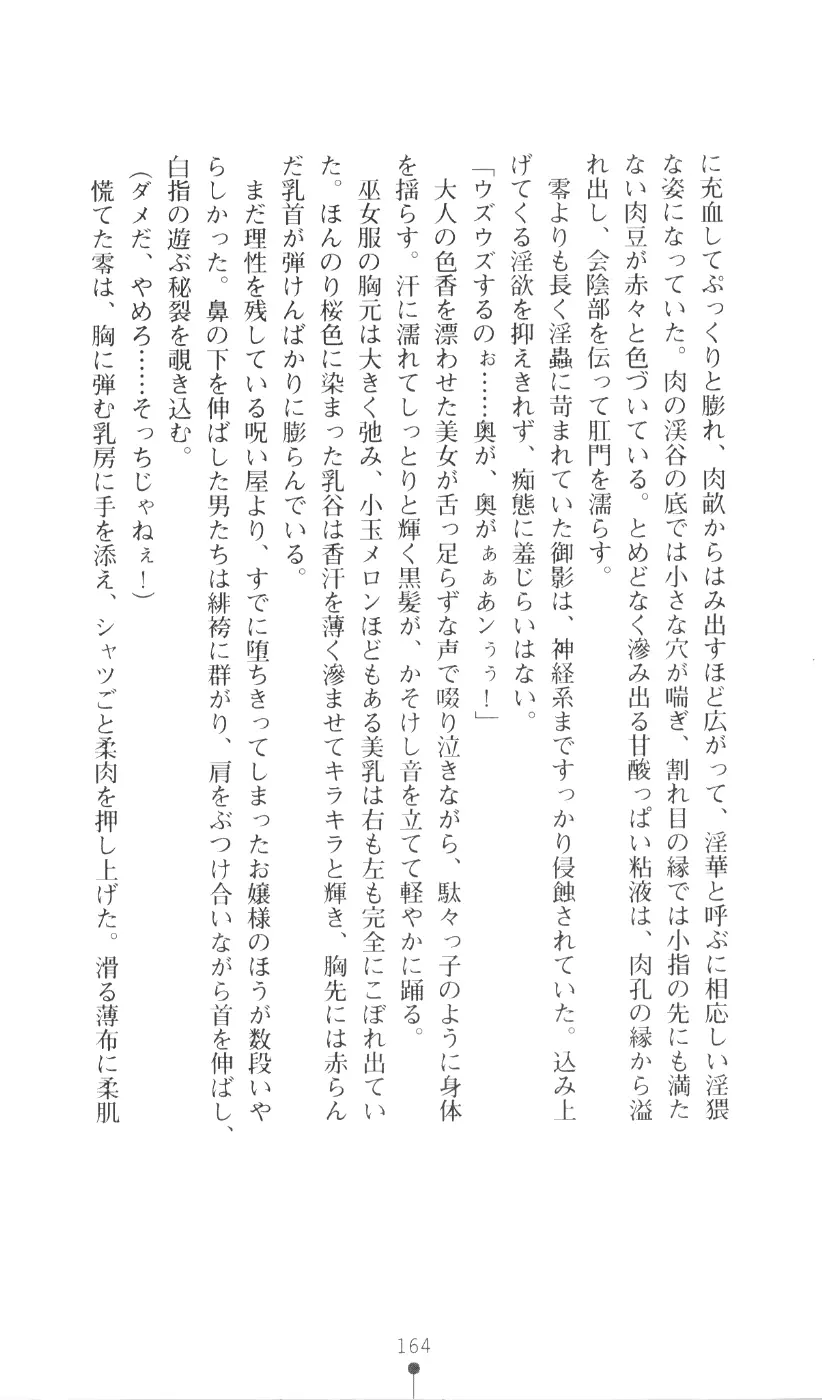 に充血してぷっくりと膨れ、肉畝からはみ出すほど広がって、淫華と呼ぶに相応しい淫猥
な姿になっていた。肉の渓谷の底では小さな穴が喘ぎ、割れ目の縁では小指の先にも満た
ない肉豆が赤々と色づいている。とめどなく滲み出る甘酸っぱい粘液は、肉孔の縁から溢
れ出し、会陰部を伝って肛門を濡らす。
零よりも長く淫蟲に苛まれていた御影は、神経系まですっかり侵蝕されていた。込み上
げてくる淫欲を抑えきれず、痴態に羞じらいはない。
「ウズウズするのぉ……奥が、奥がぁぁあンぅぅ！」
大人の色香を漂わせた美女が舌っ足らずな声で啜り泣きながら、駄々っ子のように身体
を揺らす。汗に濡れてしっとりと輝く黒髪が、かそけし音を立てて軽やかに踊る。
巫女服の胸元は大きく弛み、小玉メロンほどもある美乳は右も左も完全にこぼれ出てい
た。ほんのり桜色に染まった乳谷は香汗を薄く滲ませてキラキラと輝き、胸先には赤らん
だ乳首が弾けんばかりに膨らんでいる。
まだ理性を残している呪い屋より、すでに堕ちきってしまったお嬢様のほうが数段いや
らしかった。鼻の下を伸ばした男たちは緋袴に群がり、肩をぶつけ合いながら首を伸ばし、
白指の遊ぶ秘裂を覗き込む。
（ダメだ、やめろ……そっちじゃねぇ！）
慌てた零は、胸に弾む乳房に手を添え、シャツごと柔肉を押し上げた。滑る薄布に柔肌
164